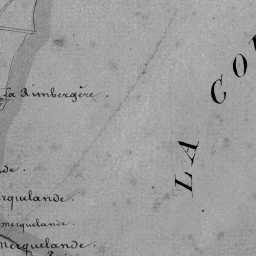 La Rimbergère.
LA CO
de.
rquelande.
merquelande.
Merquelande.